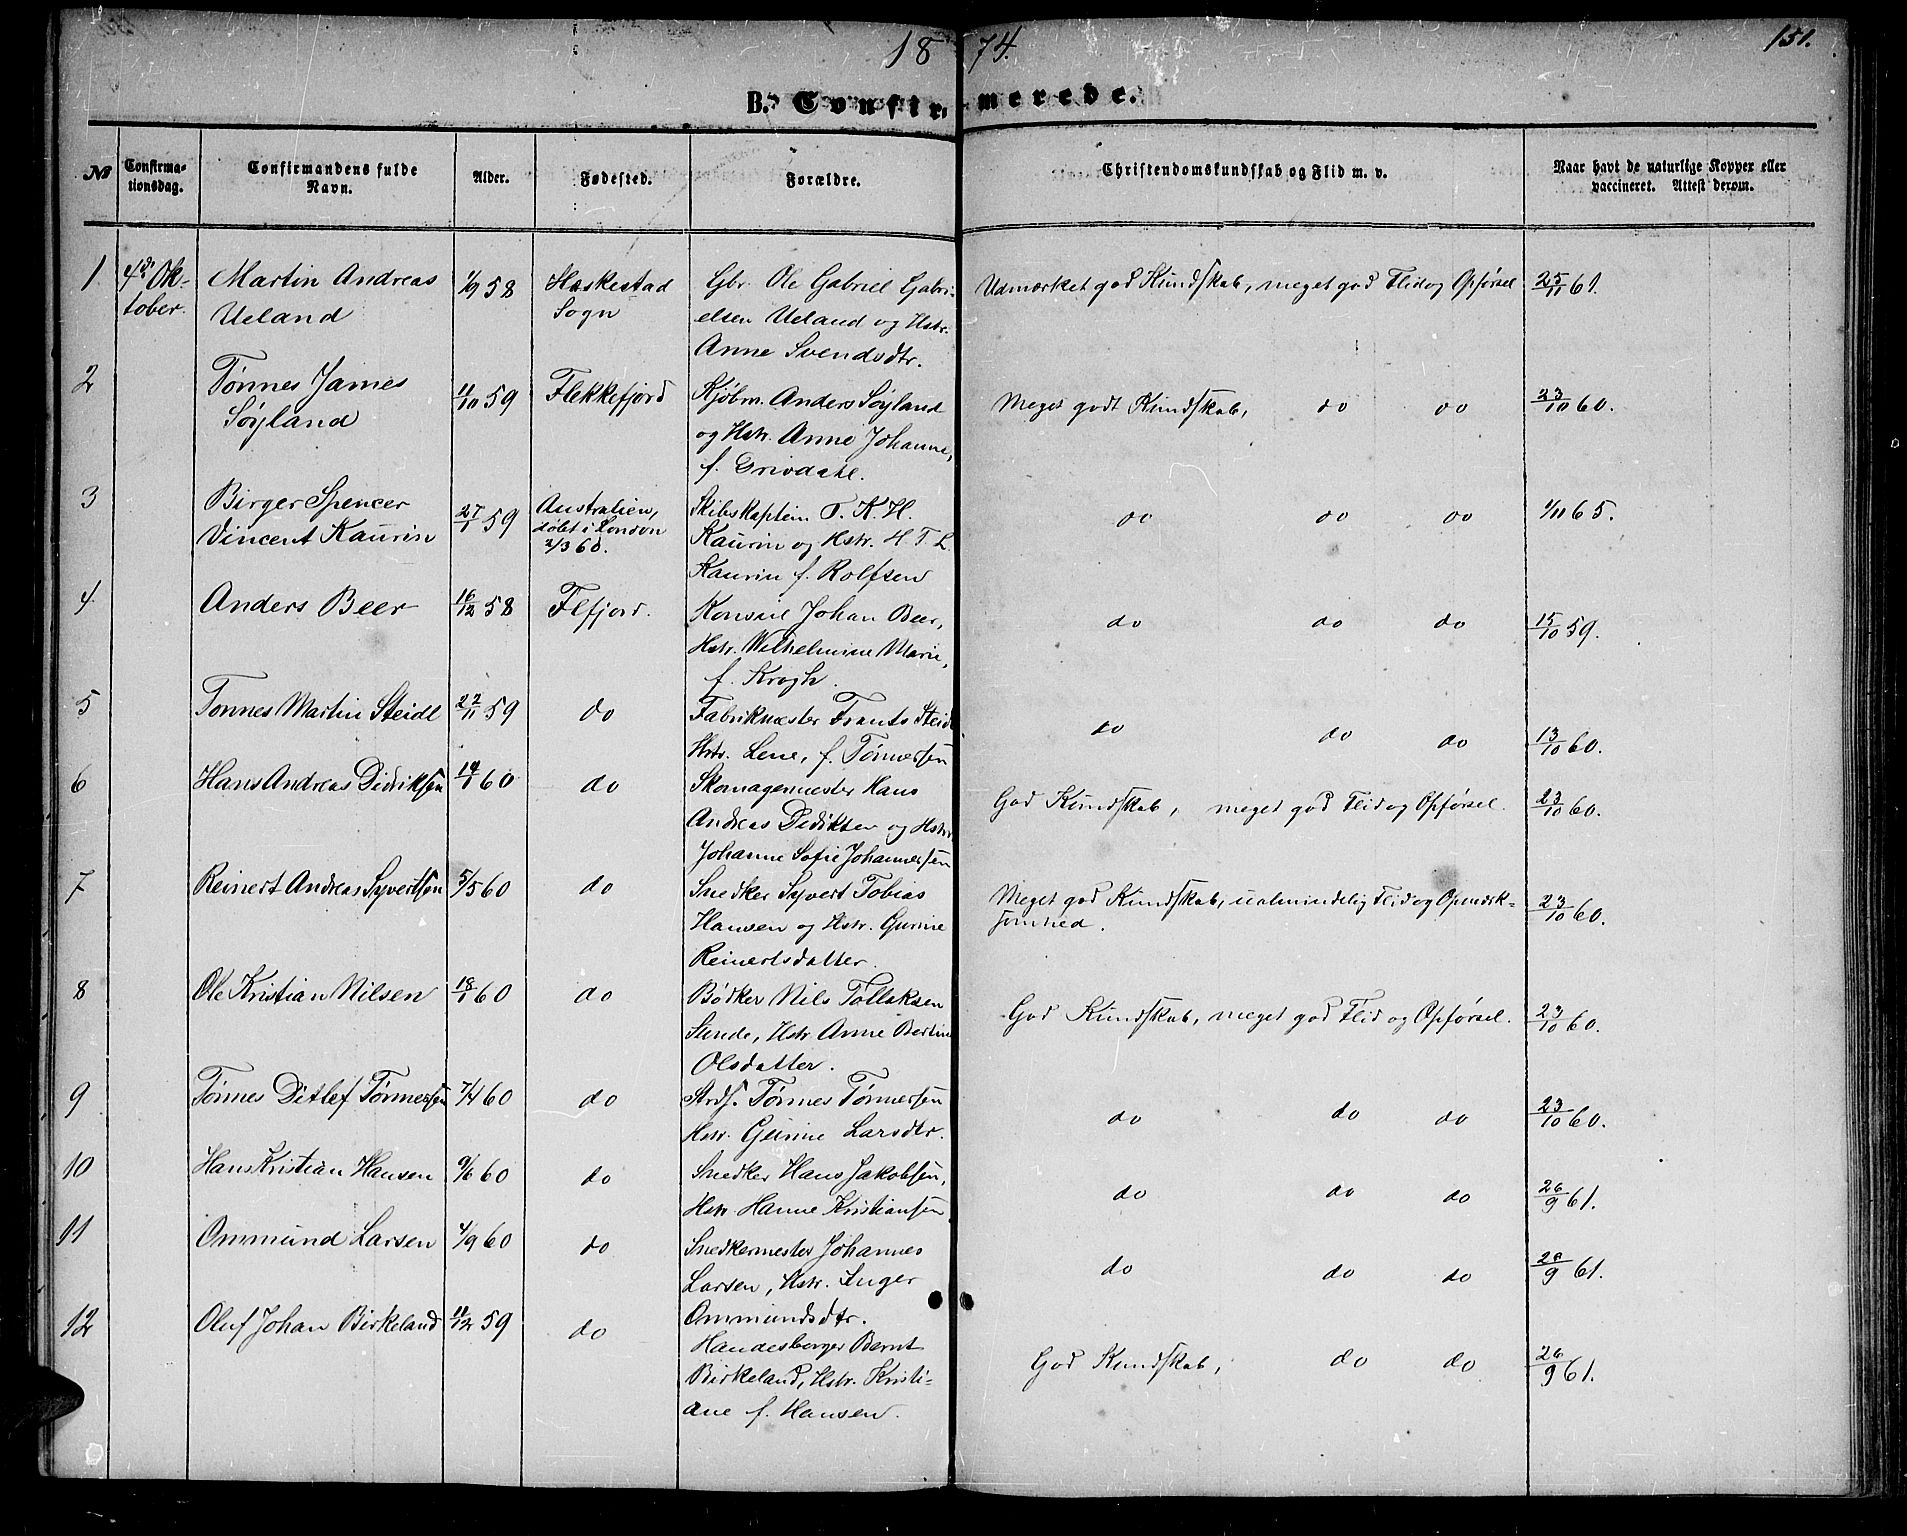 1874. 151.
B. Confirmerede.
№ Confirma-tionsdag. Confirmandens fulde Navn. Alder. Fødested. Forældre. Christendomskundskab og Flid m. v. Naar havt de naturlige Kopper eller vaccineret. Attest derom.
1 4de Ok- Martin Andreas 1/9 58 Heskestad Gbr. Ole Gabriel Gabri- Udmærket god Kundskab, meget god Flid og Opførsel 25/11 61.
tober. Ueland Sogn elsen Ueland og Hstr.
Anne Svendsdtr.
2 Tønnes James 11/10 59 Flekkefjord Kjøbm. Anders Søyland Meget godt Kundskab, do do 23/10 60.
Søyland og Hstr. Anne Johanne,
f. Drivdahl.
3 Birger Spencer 27/1 59 Australien, Skibskaptein T. K. H. do do do 1/11 65.
Vincent Kaurin døbt i London Kaurin og Hstr. H. T. L.
2/3 60. Kaurin f. Rolfsen
4 Anders Beer 16/12 58 Flfjord. Konsul Johan Beer, do do do 15/10 59.
Hstr. Wilhelmine Marie,
f. Krogh.
5 Tønnes Martin Steidl 22/11 59 do Fabrikmester Frants Steidl do do do 13/10 60.
Hstr. Lene, f. Tønnessen
6 Hans Andreas Didriksen 14/1 60 do Skomagermester Hans God Kundskab, meget god Flid og Opførsel. 23/10 60.
Andreas Didiksen og Hstr.
Johanne Sofie Johannessen
7 Reinert Andreas Syvertsen 5/5 60 do Snedker Syvert Tobias Meget god Kundskab, ualmindelig Flid og Opmærk- 23/10 60.
Hansen og Hstr. Gurine somhed.
Reinertsdatter.
8 Ole Kristian Nilsen 18/1 60 do Bødker Nils Tollaksen God Kundskab, meget god Flid og Opførsel. 23/10 60.
Stunde, Hstr. Anne Bertine
Olsdatter.
9 Tønnes Ditlef Tønnessen 7/4 60 do Strds. Tønnes Tønnessen do do do 23/10 60.
Hstr. Gurine Larsdtr.
10 Hans Kristian Hansen 9/6 60 do Snedker Hans Jakobsen, do do do 26/9 61.
Hstr. Hanne Kristiansen
11 Ommund Larsen 4/9 60 do Snedkermester Johannes do do do 26/9 61.
Larsen, Hstr. Inger
Ommundsdtr.
12 Oluf Johan Birkeland 11/12 59 do Handelsborger Bernt God Kundskab, do do 26/9 61.
Birkeland, Hstr. Kristi-
ane f. Hansen.